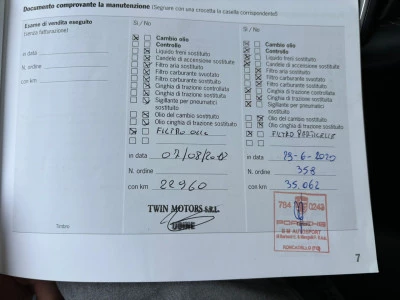 Documento comprovante la manutenzione (Segnare con una crocetta la casella corrispondente!)
Esame di vendita eseguito
(senza fatturazione)
in data
N. ordine
con km
Timbro
Sì / No
Cambio olio
Controllo
Liquido freni sostituito
Candele di accensione sostituite
Filtro aria sostituito
Filtro carburante svuotato
Filtro carburante sostituito
Cinghia di trazione controllata
Cinghia di trazione sostituita
Sigillante per pneumatici
sostituito
Olio del cambio sostituito
Olio cinghia di trazione sostituito
FILTRO OLIO
in data 07/08/2012
N. ordine
con km 22960
TWIN MOTORS S.R.L.
UDINE
Sì / No
Cambio olio
Controllo
Liquido freni sostituito
Candele di accensione sostituite
Filtro aria sostituito
Filtro carburante svuotato
Filtro carburante sostituito
Cinghia di trazione controllata
Cinghia di trazione sostituita
Sigillante per pneumatici
sostituito
Olio del cambio sostituito
Olio cinghia di trazione sostituito
in data
N. ordine 358
con km 35.062
784 0243
PORSCHE
7